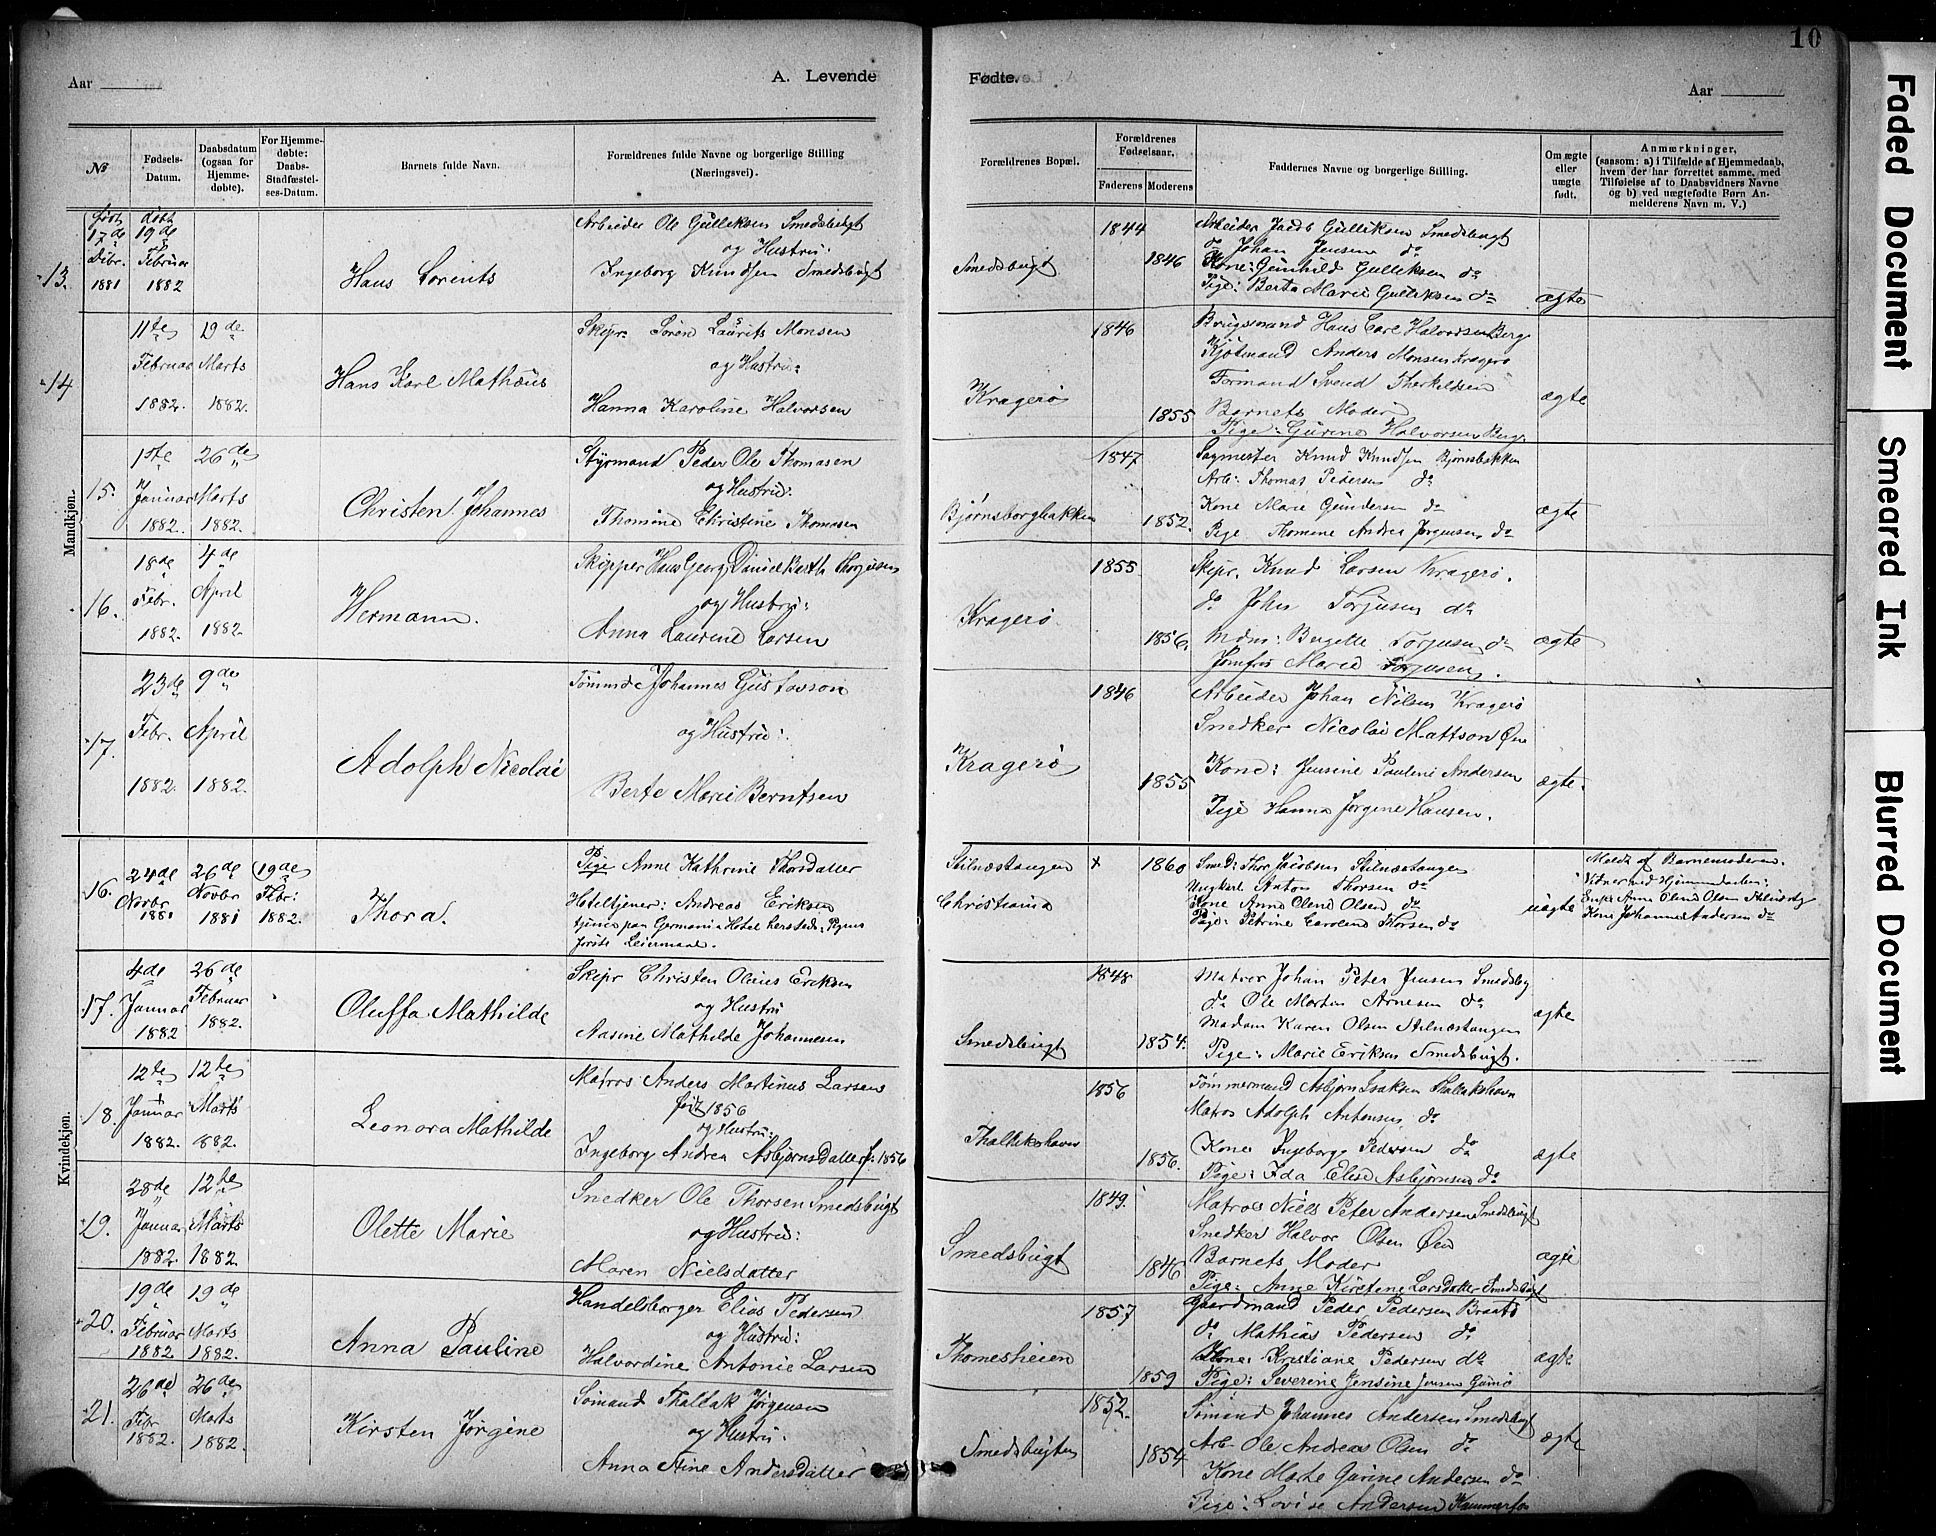 10
Aar
A. Levende
Fødte.
Aar
№
Fødsels-Datum.
Daabsdatum (ogsaa for Hjemme-døbte).
For Hjemme-døbte: Daabs-Stadfæstel-ses-Datum.
Barnets fulde Navn.
Forældrenes fulde Navne og borgerlige Stilling (Næringsvei).
Forældrenes Bopæl.
Forældrenes Fødselsaar.
Faderens
Moderens
Faddernes Navne og borgerlige Stilling.
Om ægte eller uægte født.
Anmærkninger,
(saasom: a) i Tilfælde af Hjemmedaab,
hvem der har forrettet samme, med
Tilføielse af to Daabsvidners Navne
og b) ved uægtefødte Børn An-
melderens Navn m. V.)
Mandkjøn.
13.
født 17de Dcbr. 1881
døbt 19de Februar 1882
Hans Lorents
Arbeider Ole Gulliksen Smedsbugt
og Hustru:
Ingeborg Knudsen Smedsbugt
Smedsbugt
1844
1846
Arbeider Jacob Gulliksen Smedsbugt
do Johan Jensen do
Kone: Gunhild Gulliksen do
Pige: Berta Marie Gulliksen do
ægte
14
11te Februar 1882.
19de Marts 1882.
Hans Karl Mathæus
Skipr. Søren Laurits Monsen
og Hustru:
Hanna Karoline Halvorsen
Kragerø
1846
1855
Brugsmand Hans Carl Halvorsen Berg
Kjøtmand Anders Monsen Kragerø
Formand Svend Therkildsen
Barnets Moder
Pige: Gurine Halvorsen Berg
ægte
15.
1ste Januar 1882.
26de Marts 1882.
Christen Johannes
Styrmand Peder Ole Thomasen
og Hustru:
Thomine Christine Thomasen
Bjørnsborgbakken
1847
1852.
Sagmester Knud Knudsen Bjørnsbakken
Arb: Thomas Pedersen do
Kone Marie Gundersen do
Pige Thomine Andrea Jørgensen do
ægte
16.
18de Febr. 1882.
4de April 1882.
Hermann.
Skipper Hans Georg Daniel Barth Thorjusen
og Hustru:
Anna Laurine Larsen
Kragerø.
1855
1856.
Skipr. Knud Larsen Kragerø.
do John Torjusen do
Mdm: Bergitte Torjusen do
Jomfru Marie Torjusen.
ægte
17.
23de Febr. 1882.
9de April 1882.
Adolph Nicolai
Tømmd Johannes Gustavson
og Hustru:
Berte Marie Berntsen
Kragerø
1846
1855
Arbeider Johan Nilsen Kragerø
Snedker Nicolai Mattson Øen
Kone: Jensine Pauline Andersen
Pige Hanna Jørgine Hansen.
ægte.
Kvindekjøn.
16.
24de Novbr 1881
26de Novbr 1881
(19de Febr: 1882.
Thora.
Pige Anne Kathrine Thorsdatter
Hoteltjener: Andreas Eriksen
tjener paa Germania Hotel hersteds, Pigens
første Leiermaal.
Stilnæstangen
Christiania
x
1860
Smed: Thor Jacobsen Stilnæstangen
Ungkarl Anton Thorsen do
Kone Anne Olene Olsen do
Pige: Petrine Caroline Thorsen do
uægte
Meldt af Barnemoderen.
Vidner ved Hjemmedaaben:
Enke Anne Olene Olsen
Kone Johanne Andersen do
17.
4de Januar 1882
26de Februar 1882.
Oluffa Mathilde
Skipr Christen Olaus Eriksen
og Hustru
Nasine Mathilde Johannesen
Smedsbugt
1848
1854.
Matros Johan Peter Jensen Smedsbg
do Ole Morten Arnesen do
Madam Karen Olsen Stilnæstangen
Pige: Marie Eriksen Smedsbugt.
ægte
18.
12te Januar 1882.
12te Marts 882.
Leonora Mathilde
Matros Anders Martinus Larsen
født 1856
og Hustru:
Ingeborg Andrea Asbjørnsdatter f: 1856
Thallakshavn
1856
1856.
Tømmermand Asbjørn Isaksen Thallakshavn
Matros Adolph Antonsen, do
Kone Ingeborg Pedersen do
Pige: Ida Elise Asbjørnsen do
ægte
19.
28de Januar 1882
12te Marts 1882.
Olette Marie
Snedker Ole Thorsen Smedsbugt
og Hustru:
Maren Nielsdatter
Smedsbugt
1849.
1846
Matros Niels Peter Andersen Smedsbugt
Snedker Halvor Olsen Øen
Barnets Moder
Pige: Anne Kirstene Larsdatter Smedsbugt
ægte
20.
19de Februar 1882
19de Marts 1882.
Anna Pauline
Handelsborger Elias Pedersen
og Hustru:
Halvordine Antonie Larsen
Thomesheien
1857
1859
Gaardmand Peder Pedersen Braatø
do Mathias Pedersen do
Kone: Kristiane Pedersen do
Pige: Severine Jensine Jensen Gumø
ægte
21.
26de Febr 1882.
26de Marts 1882.
Kirsten Jørgine
Sømand Thallak Jørgensen
og Hustru:
Anna Stine Andersdatter
Smedsbugten
1852.
1854
Sømand Johannes Andersen Smedsbugt
Arb Ole Andreas Olsen do
Kone Marte Gurine Andersen do
Pige: Lovise Andersen
ægte
Faded Document
Smeared Ink
Blurred Document